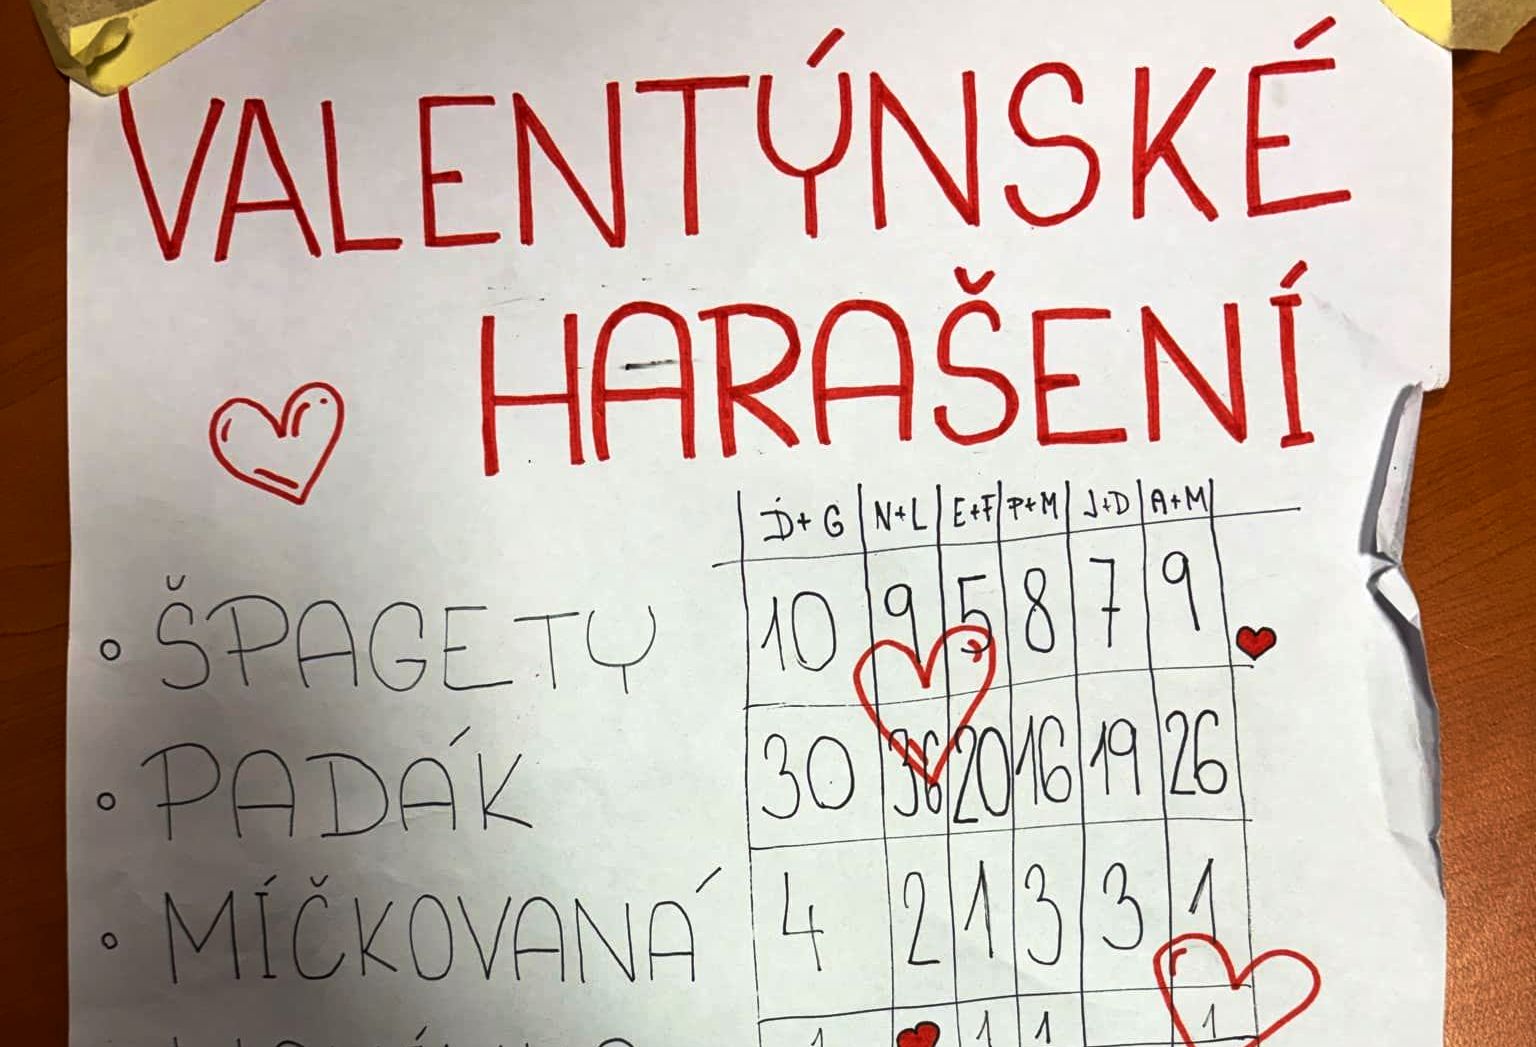 VALENTÝNSKÉ
HARAŠENÍ
D+G N+L E+F P+M J+D A+M
ŠPAGETY 10 9 5 8 7 9
PADÁK 30 36 20 16 19 26
MÍČKOVANÁ 4 2 1 3 3 1
1 1 1 1